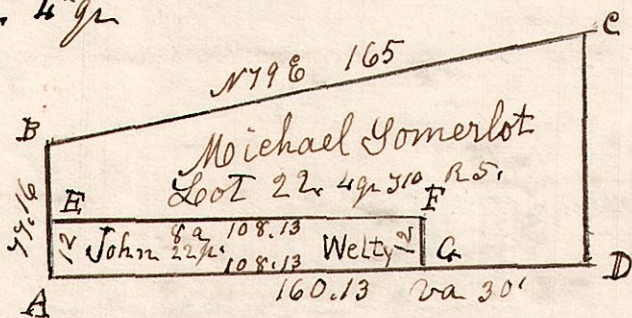 4 qr
C
N79E 165
B
Michael Somerlot
Lot 22. 4qr T10 R5.
77.16
E
F
12 John 8a 22p. 108.13 Welty 12 G
108.13
A
160.13 va 30'
D